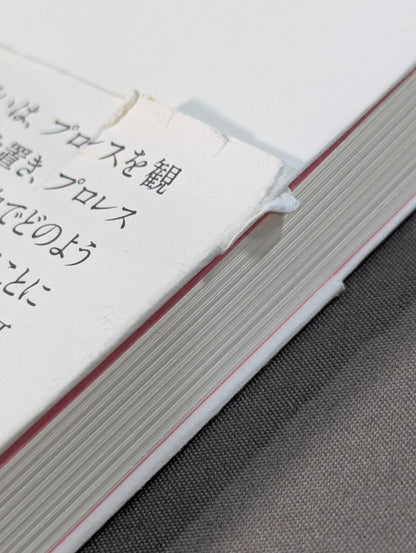 いは、プロレスを観
置き、プロレス
でどのよう
ことに